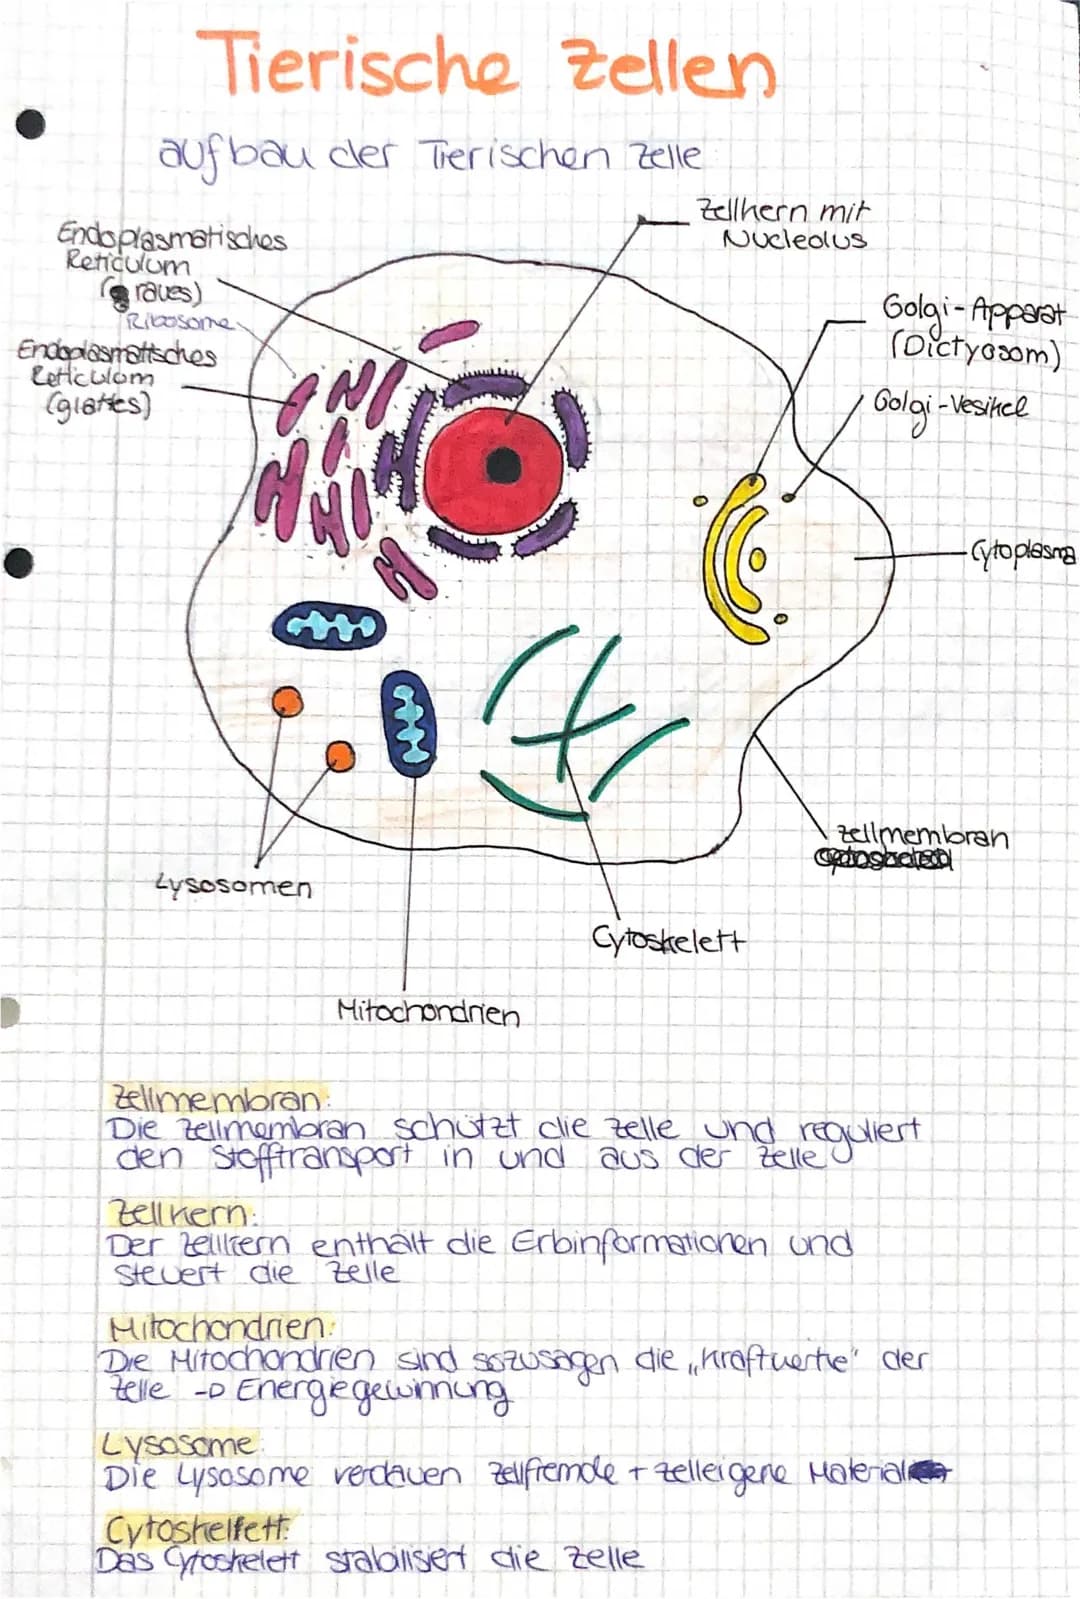 Tierische Zellen
aufbau der Tierischen Zelle
Zellkern mit
Nucleolus
Endoplasmatisches
Reticulum
(raues)
Ribosome
Endoplasmatisches
Reticulum
(glattes)
Golgi-Apparat
(Dictyosom)
Golgi-Vesikel
Cytoplasma
Zellmembran
Lysosomen
Cytoskelett
Mitochondrien
Zellmembran:
Die Zellmembran schützt die Zelle und reguliert
den Stofftransport in und aus der Zelle
Zellkern:
Der Zellkern enthält die Erbinformationen und
steuert die Zelle
Mitochondrien:
Die Mitochondrien sind sozusagen die „Kraftwerke" der
Zelle → Energiegewinnung
Lysosome:
Die Lysosome verdauen zellfremde + zelleigene Material
Cytoskelfett:
Das Cytoskelett stabilisert die Zelle